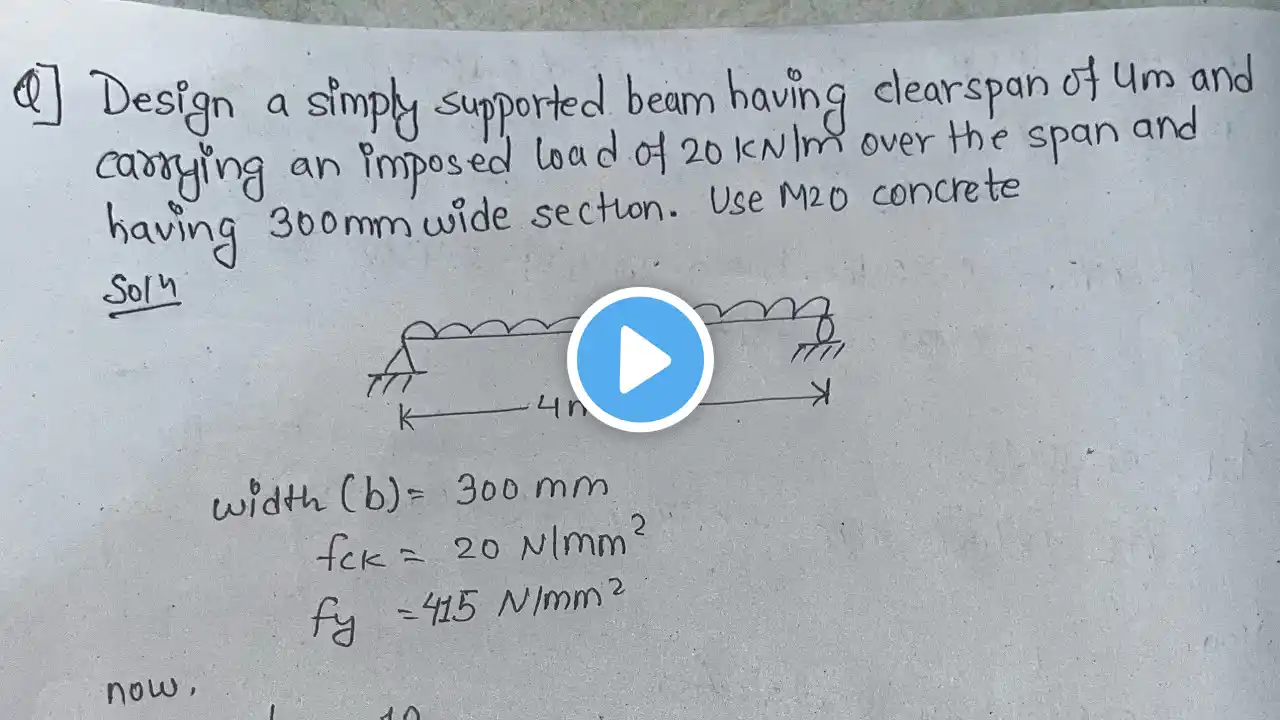 Q] Design a simply supported beam having clearspan of 4m and
carrying an imposed load of 20 KN/m over the span and
having 300mm wide section. Use M20 concrete
Soln
width (b) = 300 mm
fck = 20 N/mm²
fy = 415 N/mm²
now,